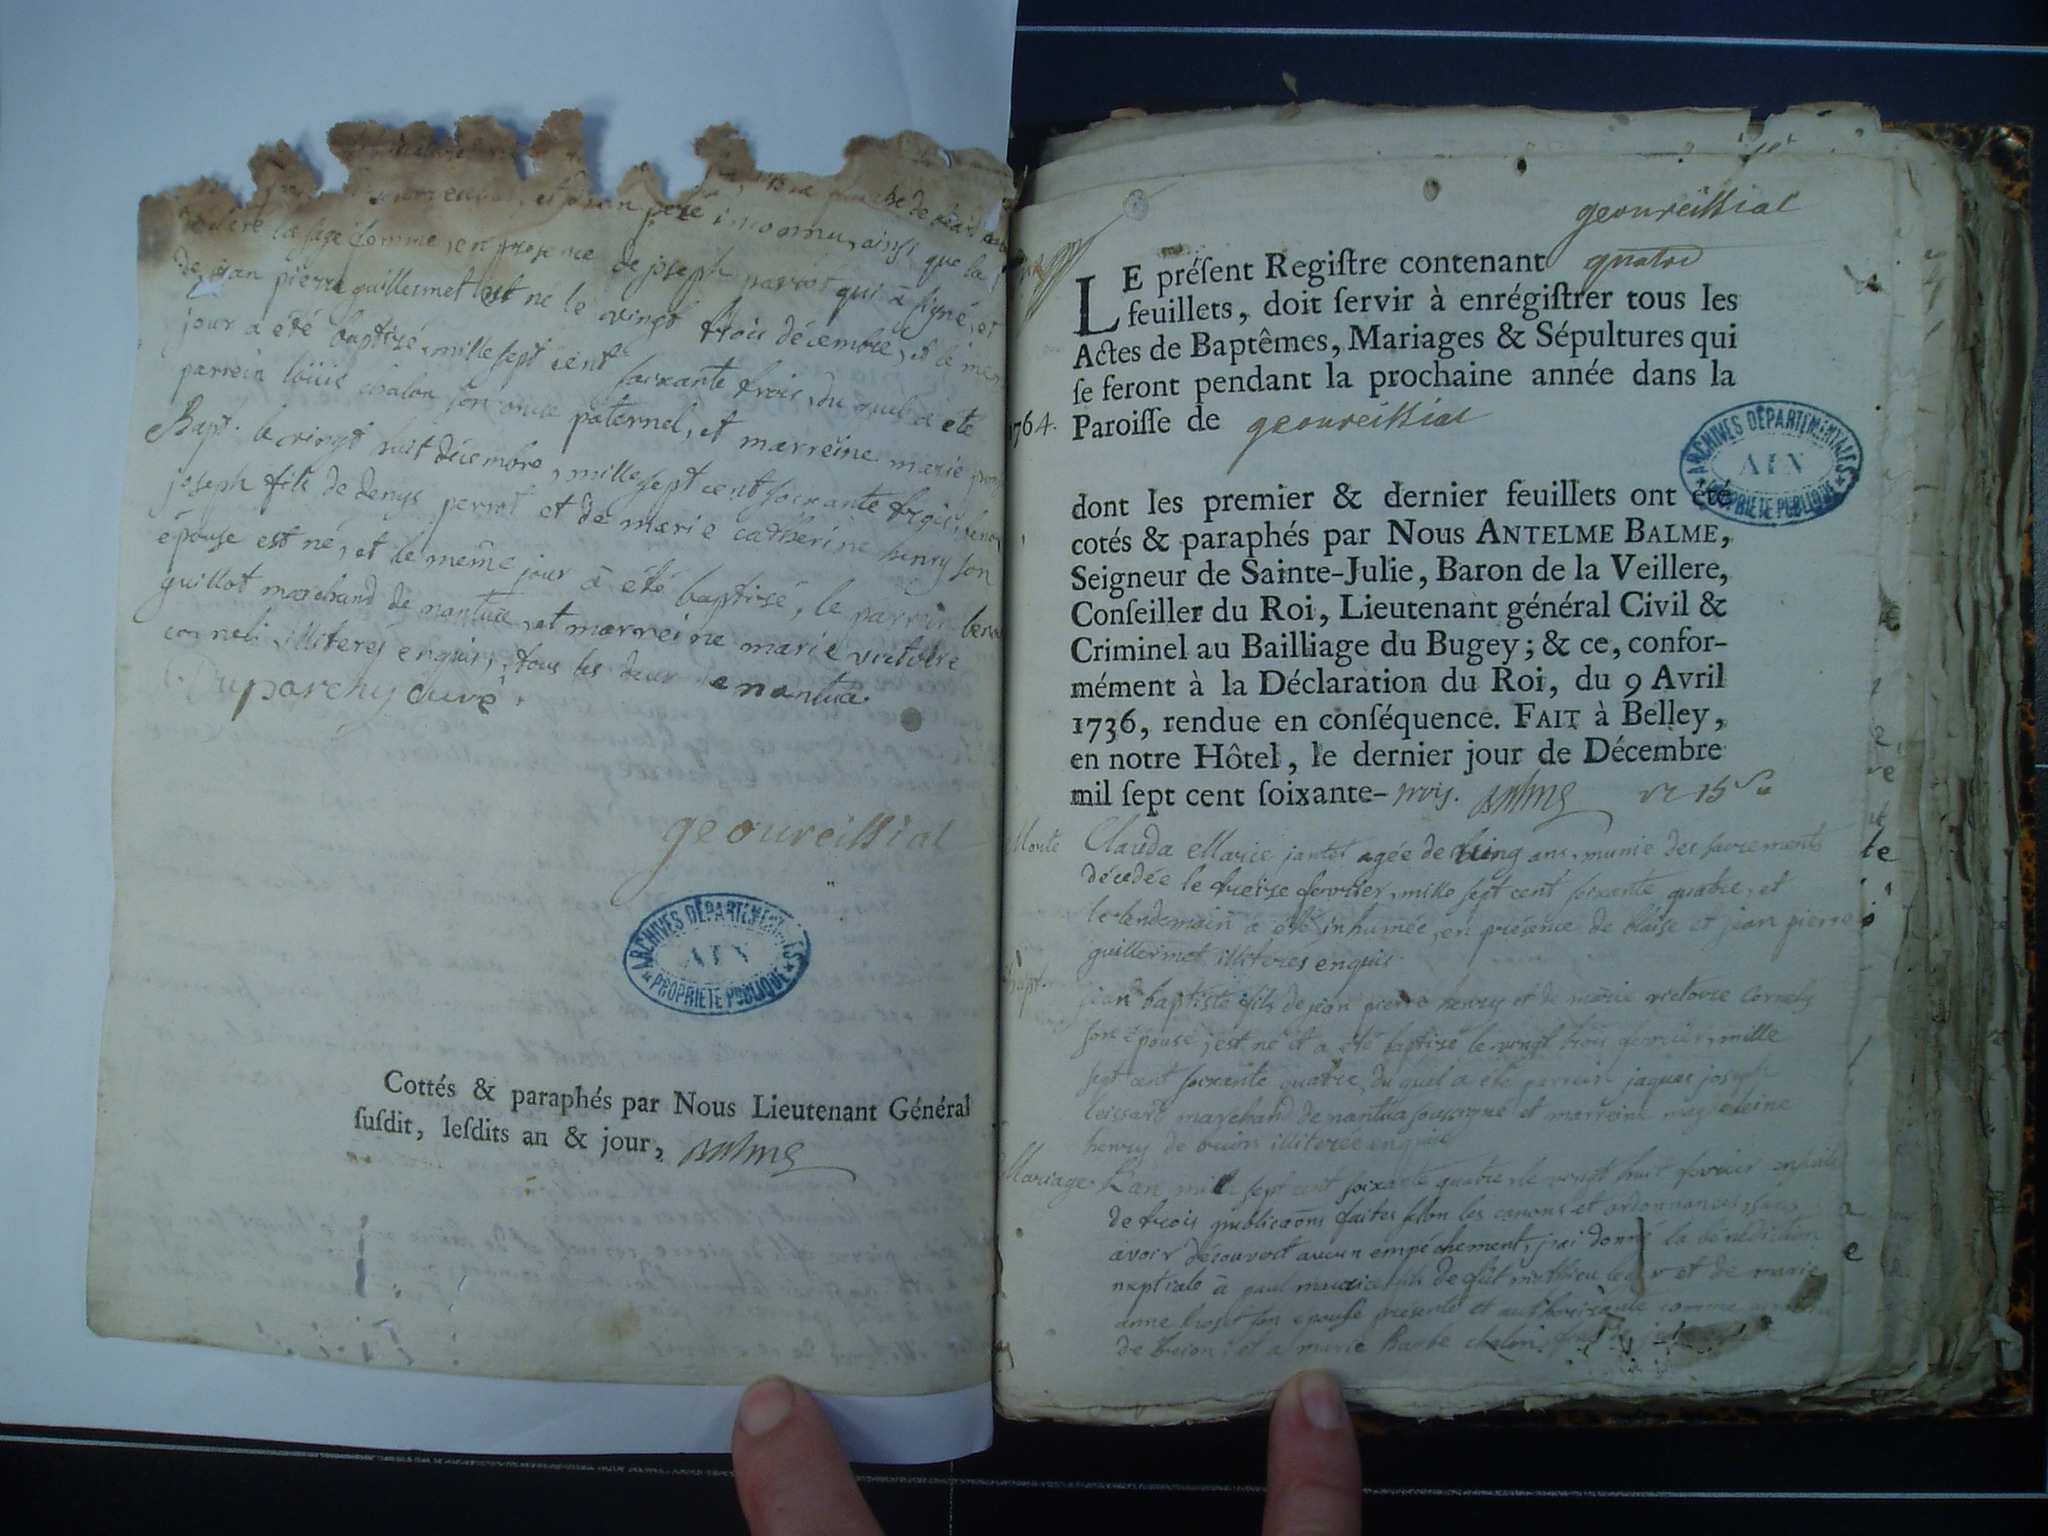 père inconnu, ainsi que la
la sage femme, en presence de joseph perrot qui à signé, et
de jean pierre guillermet est né le vingt trois décembre, et le mem
jour a été baptizé, mille sept cent soixante trois, du quel a été
parrein loüis chalon son oncle paternel, et marreine marie
Bapt. le vingt huit décembre, mille sept cent soixante trois
joseph fils de denys perrot et de marie catherine henry son
épouse est né, et le même jour à été baptisé, le parrin
guillot marchand de nantua, et marreine marie victoire
corneli illiterés enquis, tous les deux de nantua.
Duparchy curé.
geoureissiat
ARCHIVES DÉPARTEMENTALES
AIN
PROPRIÉTÉ PUBLIQUE
Cottés & paraphés par Nous Lieutenant Général
susdit, lesdits an & jour, Balme
geoureissiat
LE présent Registre contenant quatre
feuillets, doit servir à enrégistrer tous les
Actes de Baptêmes, Mariages & Sépultures qui
se feront pendant la prochaine année dans la
1764. Paroisse de geoureissiat
ARCHIVES DÉPARTEMENTALES
AIN
PROPRIÉTÉ PUBLIQUE
dont les premier & dernier feuillets ont été
cotés & paraphés par Nous ANTELME BALME,
Seigneur de Sainte-Julie, Baron de la Veillere,
Conseiller du Roi, Lieutenant général Civil &
Criminel au Bailliage du Bugey; & ce, confor-
mément à la Déclaration du Roi, du 9 Avril
1736, rendue en conséquence. FAIT à Belley,
en notre Hôtel, le dernier jour de Décembre
mil sept cent soixante-trois. Balme
Morte Clauda Marie jantet agée de ans, munie des sacrements
décédée le treize fevrier, mille sept cent soixante quatre, et
le lendemain a été inhumée, en présence de blaise et jean pierre
guillermet illiteres enquis.
bapt. jean baptiste fils de jean pierre henry et de marie victoire Cornely
son épouse, est né et a été baptisé le vingt trois fevrier, mille
sept cent soixante quatre, du quel a été parrein jaques joseph
marchand de nantua soussigné et marreine magdeleine
henry de brion illiterée enquise
Mariage. L'an mille sept cent soixante quatre, le vingt huit fevrier ensuite
de trois publicaõns faites selon les canons et ordonnances, sans
avoir découvert aucun empéchement, j'ai donné la bénédiction
nuptiale à paul maurice fils de fût mathieu et de marie
anne son epouse presente et authorisante comme
de brion: et a marie Barbe chalon